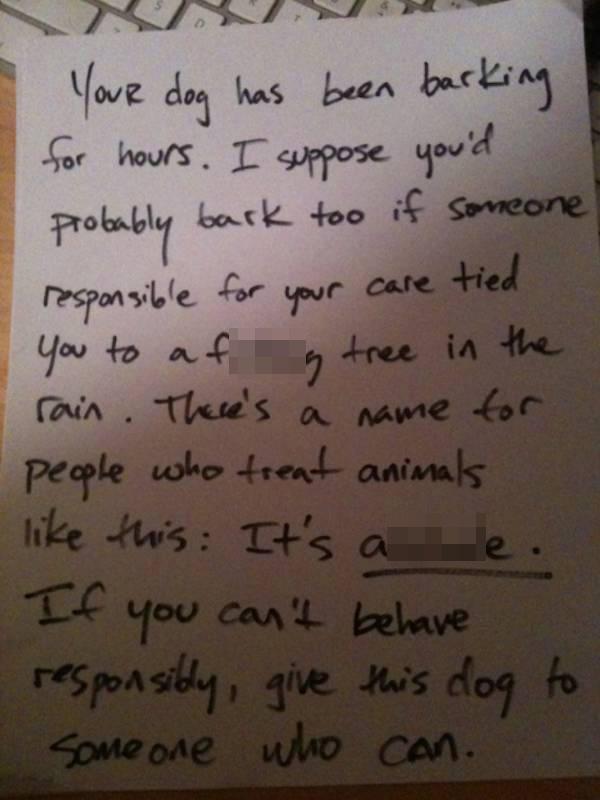 Your dog has been barking
for hours. I suppose you'd
probably bark too if someone
responsible for your care tied
you to a f g tree in the
rain. There's a name for
people who treat animals
like this: It's a e.
If you can't behave
responsibly, give this dog to
someone who can.